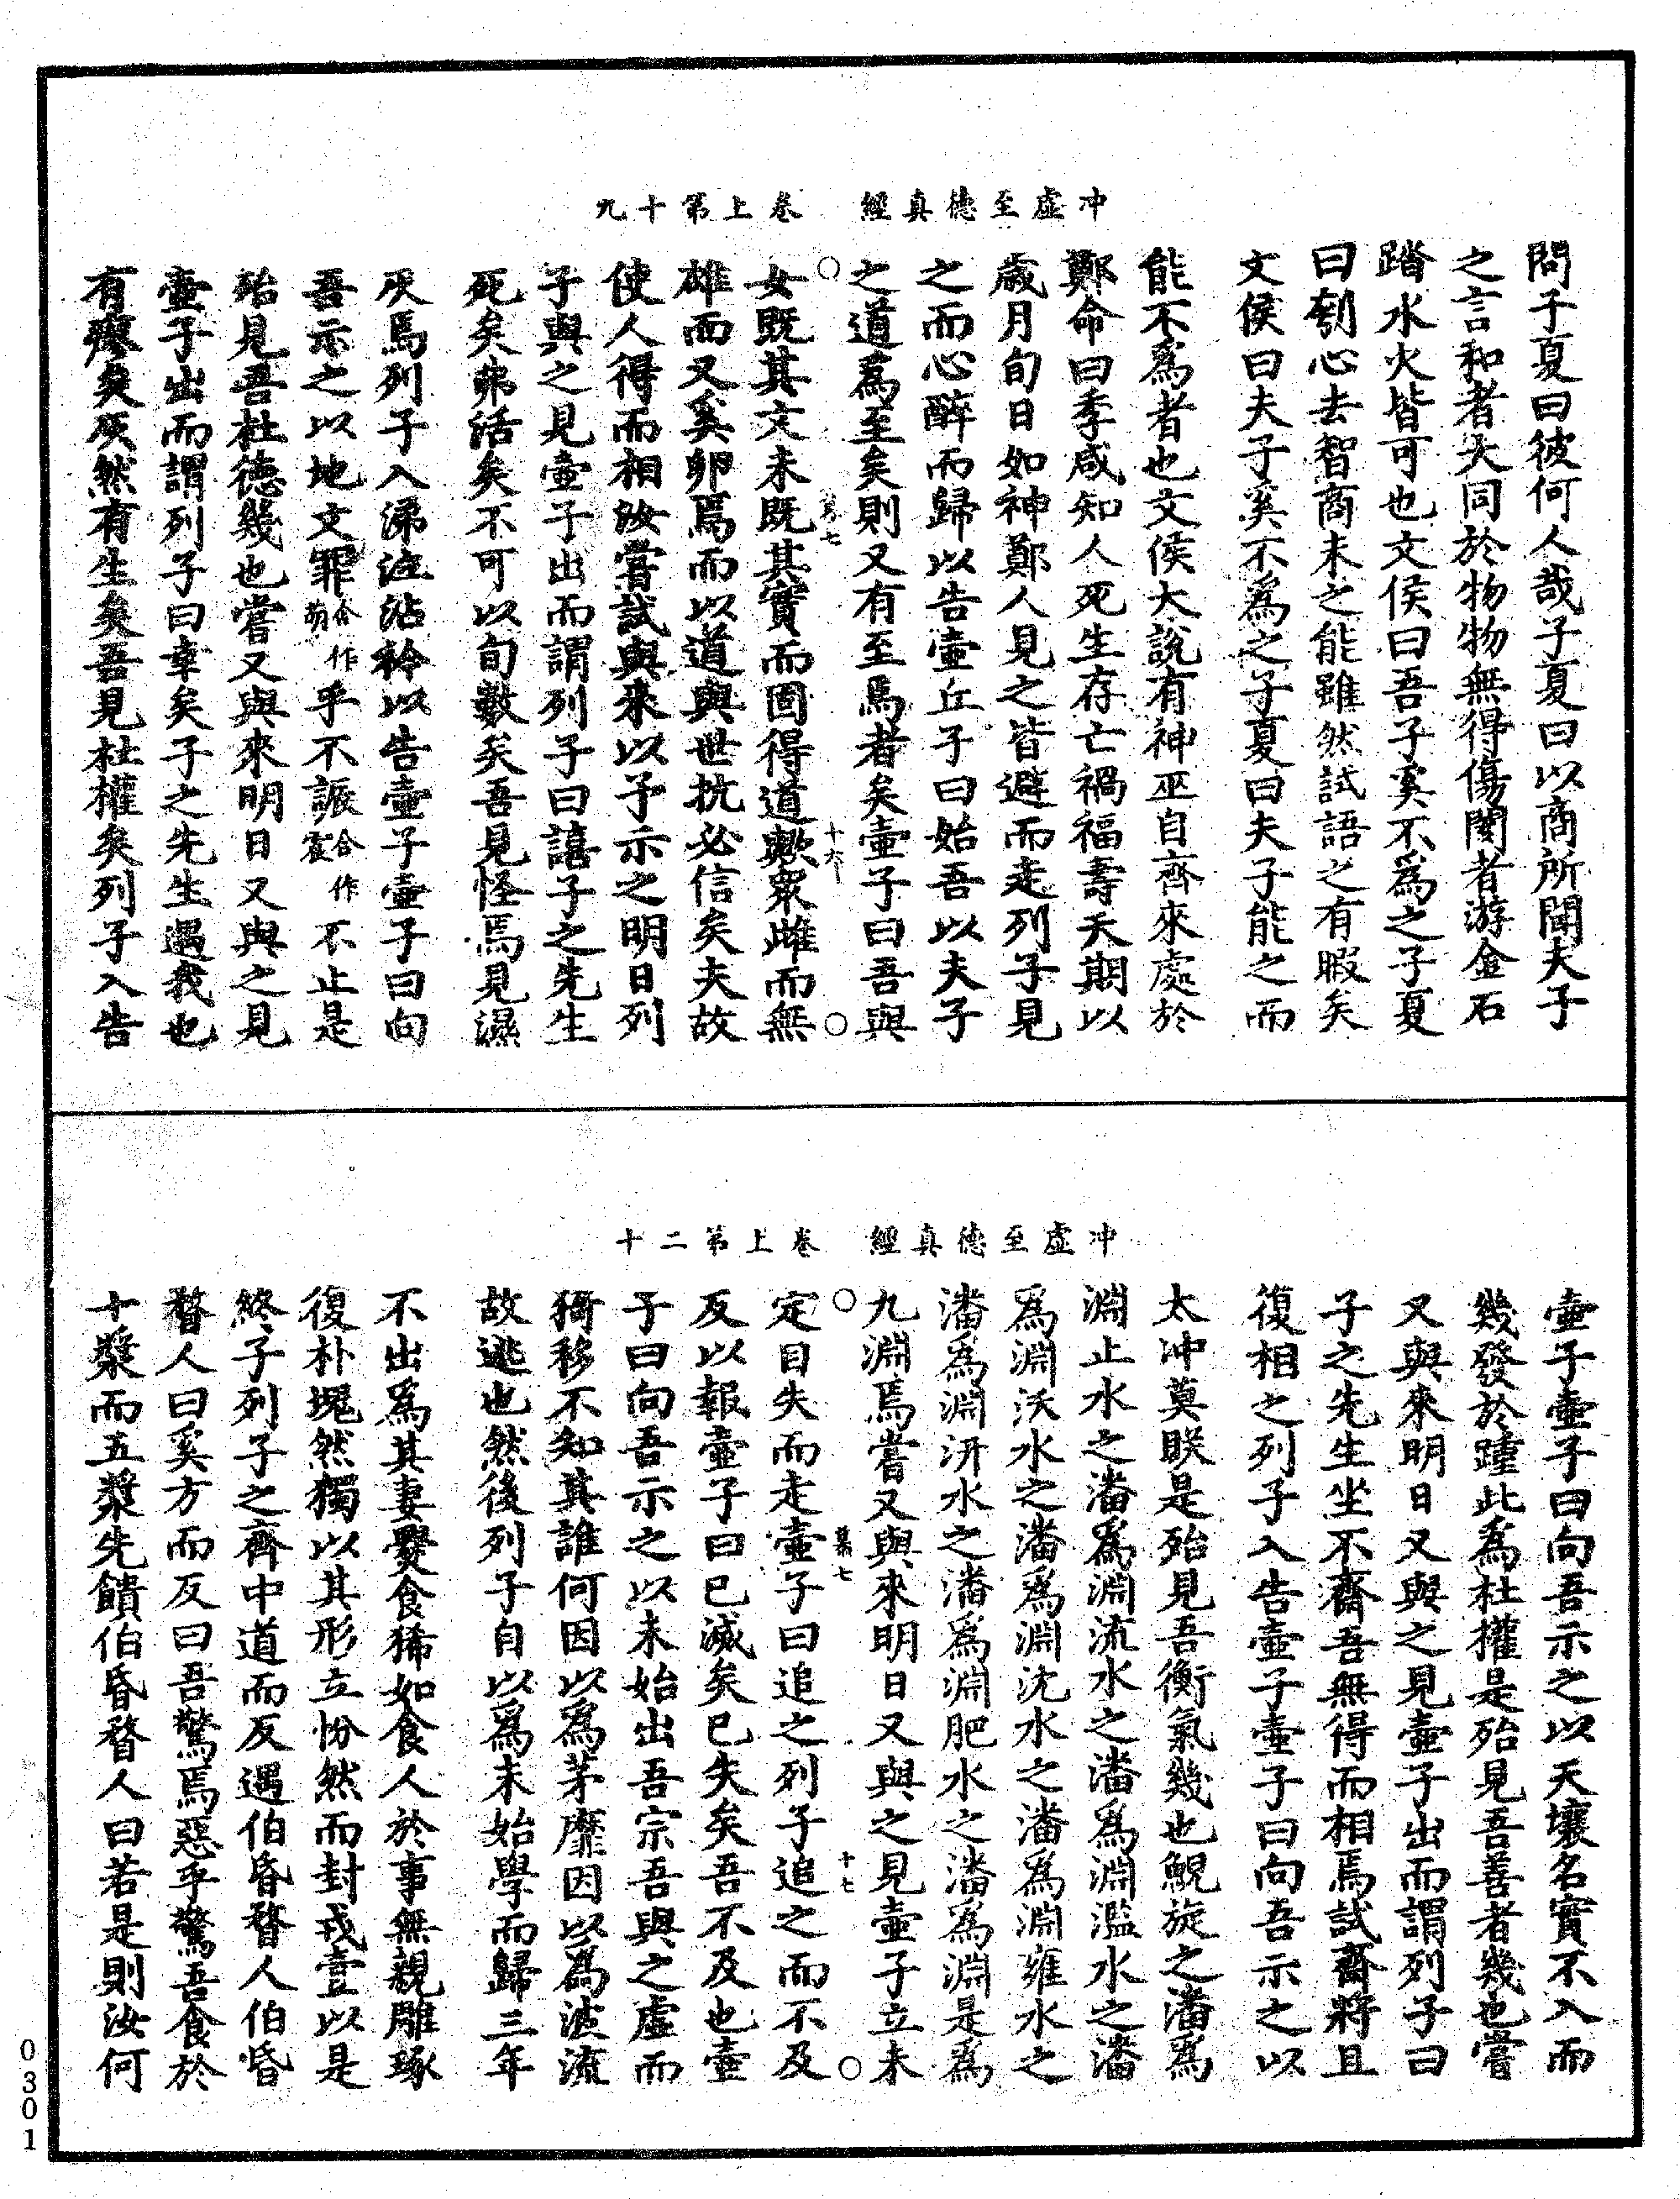 冲虛至德真經　卷上第十九
問子夏曰彼何人哉子夏曰以商所聞夫子
之言和者大同於物物無得傷閡者游金石
蹈水火皆可也文侯曰吾子奚不爲之子夏
曰刳心去智商未之能雖然試語之有暇矣
文侯曰夫子奚不爲之子夏曰夫子能之而
能不爲者也文侯大說有神巫自齊來處於
鄭命曰季咸知人死生存亡禍福壽夭期以
歲月旬日如神鄭人見之皆避而走列子見
之而心醉而歸以告壷丘子曰始吾以夫子
之道爲至矣則又有至焉者矣壷子曰吾與
女既其文未既其實而固得道歟衆雌而無
雄而又奚卵焉而以道與世抗必信矣夫故
使人得而相汝嘗試與來以予示之明日列
子與之見壷子出而謂列子曰譆子之先生
死矣弗活矣不可以旬數矣吾見怪焉見濕
灰焉列子入涕泣沾衿以告壷子壷子曰向
吾示之以地文罪合作萌乎不誫合作震不止是
殆見吾杜德幾也嘗又與來明日又與之見
壷子出而謂列子曰幸矣子之先生遇我也
有瘳矣灰然有生矣吾見杜權矣列子入告
冲虛至德真經　卷上第二十
壷子壷子曰向吾示之以天壤名實不入而
幾發於踵此爲杜權是殆見吾善者幾也嘗
又與來明日又與之見壷子出而謂列子曰
子之先生坐不齋吾無得而相焉試齋將且
復相之列子入告壷子壷子曰向吾示之以
太冲莫眹是殆見吾衡氣幾也鯢旋之潘爲
淵止水之潘爲淵流水之潘爲淵濫水之潘
爲淵沃水之潘爲淵沈水之潘爲淵雍水之
潘爲淵汧水之潘爲淵肥水之潘爲淵是爲
九淵焉嘗又與來明日又與之見壷子立未
定自失而走壷子曰追之列子追之而不及
反以報壷子曰已滅矣已失矣吾不及也壷
子曰向吾示之以未始出吾宗吾與之虛而
猗移不知其誰何因以爲茅靡因以爲波流
故逃也然後列子自以爲未始學而歸三年
不出爲其妻爨食狶如食人於事無親雕琢
復朴塊然獨以其形立㤋然而封戎壹以是
終子列子之齊中道而反遇伯昏瞀人伯昏
瞀人曰奚方而反曰吾驚焉惡乎驚吾食於
十漿而五漿先饋伯昏瞀人曰若是則汝何
0301